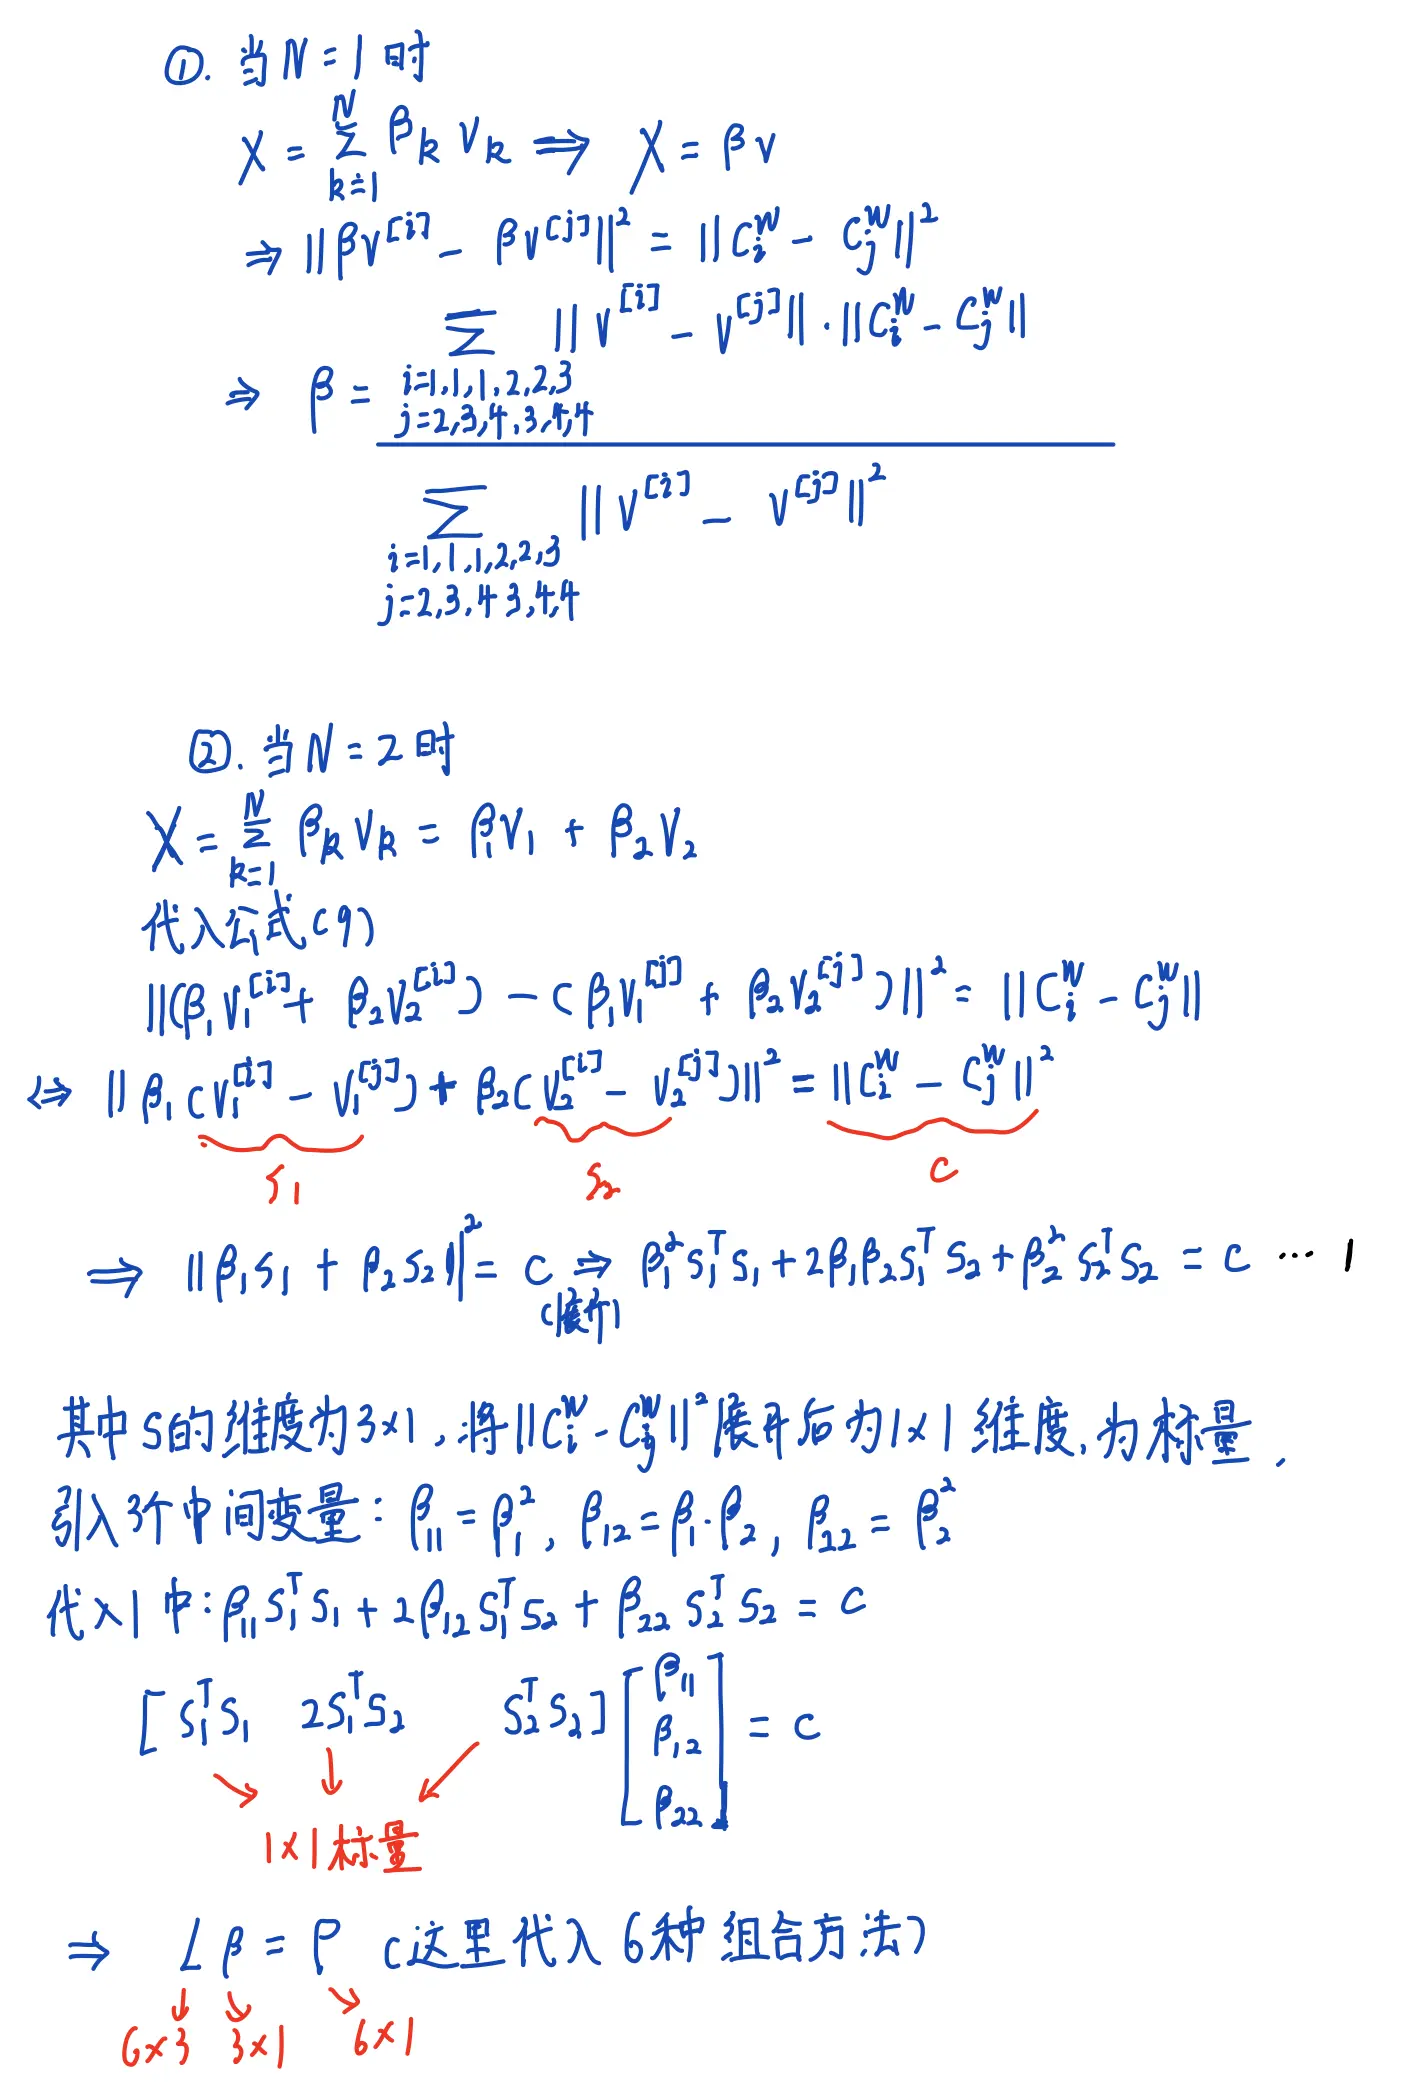 ①. 当 N = 1 时
X = \sum_{k=1}^{N} β_k v_k ⟹ X = β v
⇒ ||β v^{[i]} - β v^{[j]}||^2 = ||C_i^w - C_j^w||^2
⇒ β = \frac{\sum_{i=1,1,1,2,2,3 \; j=2,3,4,3,4,4} ||v^{[i]} - v^{[j]}|| · ||C_i^w - C_j^w||}{\sum_{i=1,1,1,2,2,3 \; j=2,3,4 3,4,4} ||v^{[i]} - v^{[j]}||^2}
②. 当 N = 2 时
X = \sum_{k=1}^{N} β_k v_k = β_1 v_1 + β_2 v_2
代入公式(9)
||(β_1 v_1^{[i]} + β_2 v_2^{[i]}) - (β_1 v_1^{[j]} + β_2 v_2^{[j]})||^2 = ||C_i^w - C_j^w||
<=> ||β_1 (v_1^{[i]} - v_1^{[j]}) + β_2 (v_2^{[i]} - v_2^{[j]})||^2 = ||C_i^w - C_j^w||^2
S_1 S_2 c
⟹ ||β_1 S_1 + β_2 S_2||^2 = c ⇒ β_1^2 S_1^T S_1 + 2β_1 β_2 S_1^T S_2 + β_2^2 S_2^T S_2 = c ··· 1
(展开)
其中 S的维度为 3×1, 将||C_i^w - C_j^w||^2 展开后为 1×1 维度, 为标量.
引入3个中间变量: β_{11} = β_1^2, β_{12} = β_1·β_2, β_{22} = β_2^2
代入1中: β_{11} S_1^T S_1 + 2β_{12} S_1^T S_2 + β_{22} S_2^T S_2 = c
[S_1^T S_1 2S_1^T S_2 S_2^T S_2] [β_{11} β_{12} β_{22}] = c
1×1 标量
⇒ Lβ = ρ (这里代入 6种 组合方法)
6×3 3×1 6×1